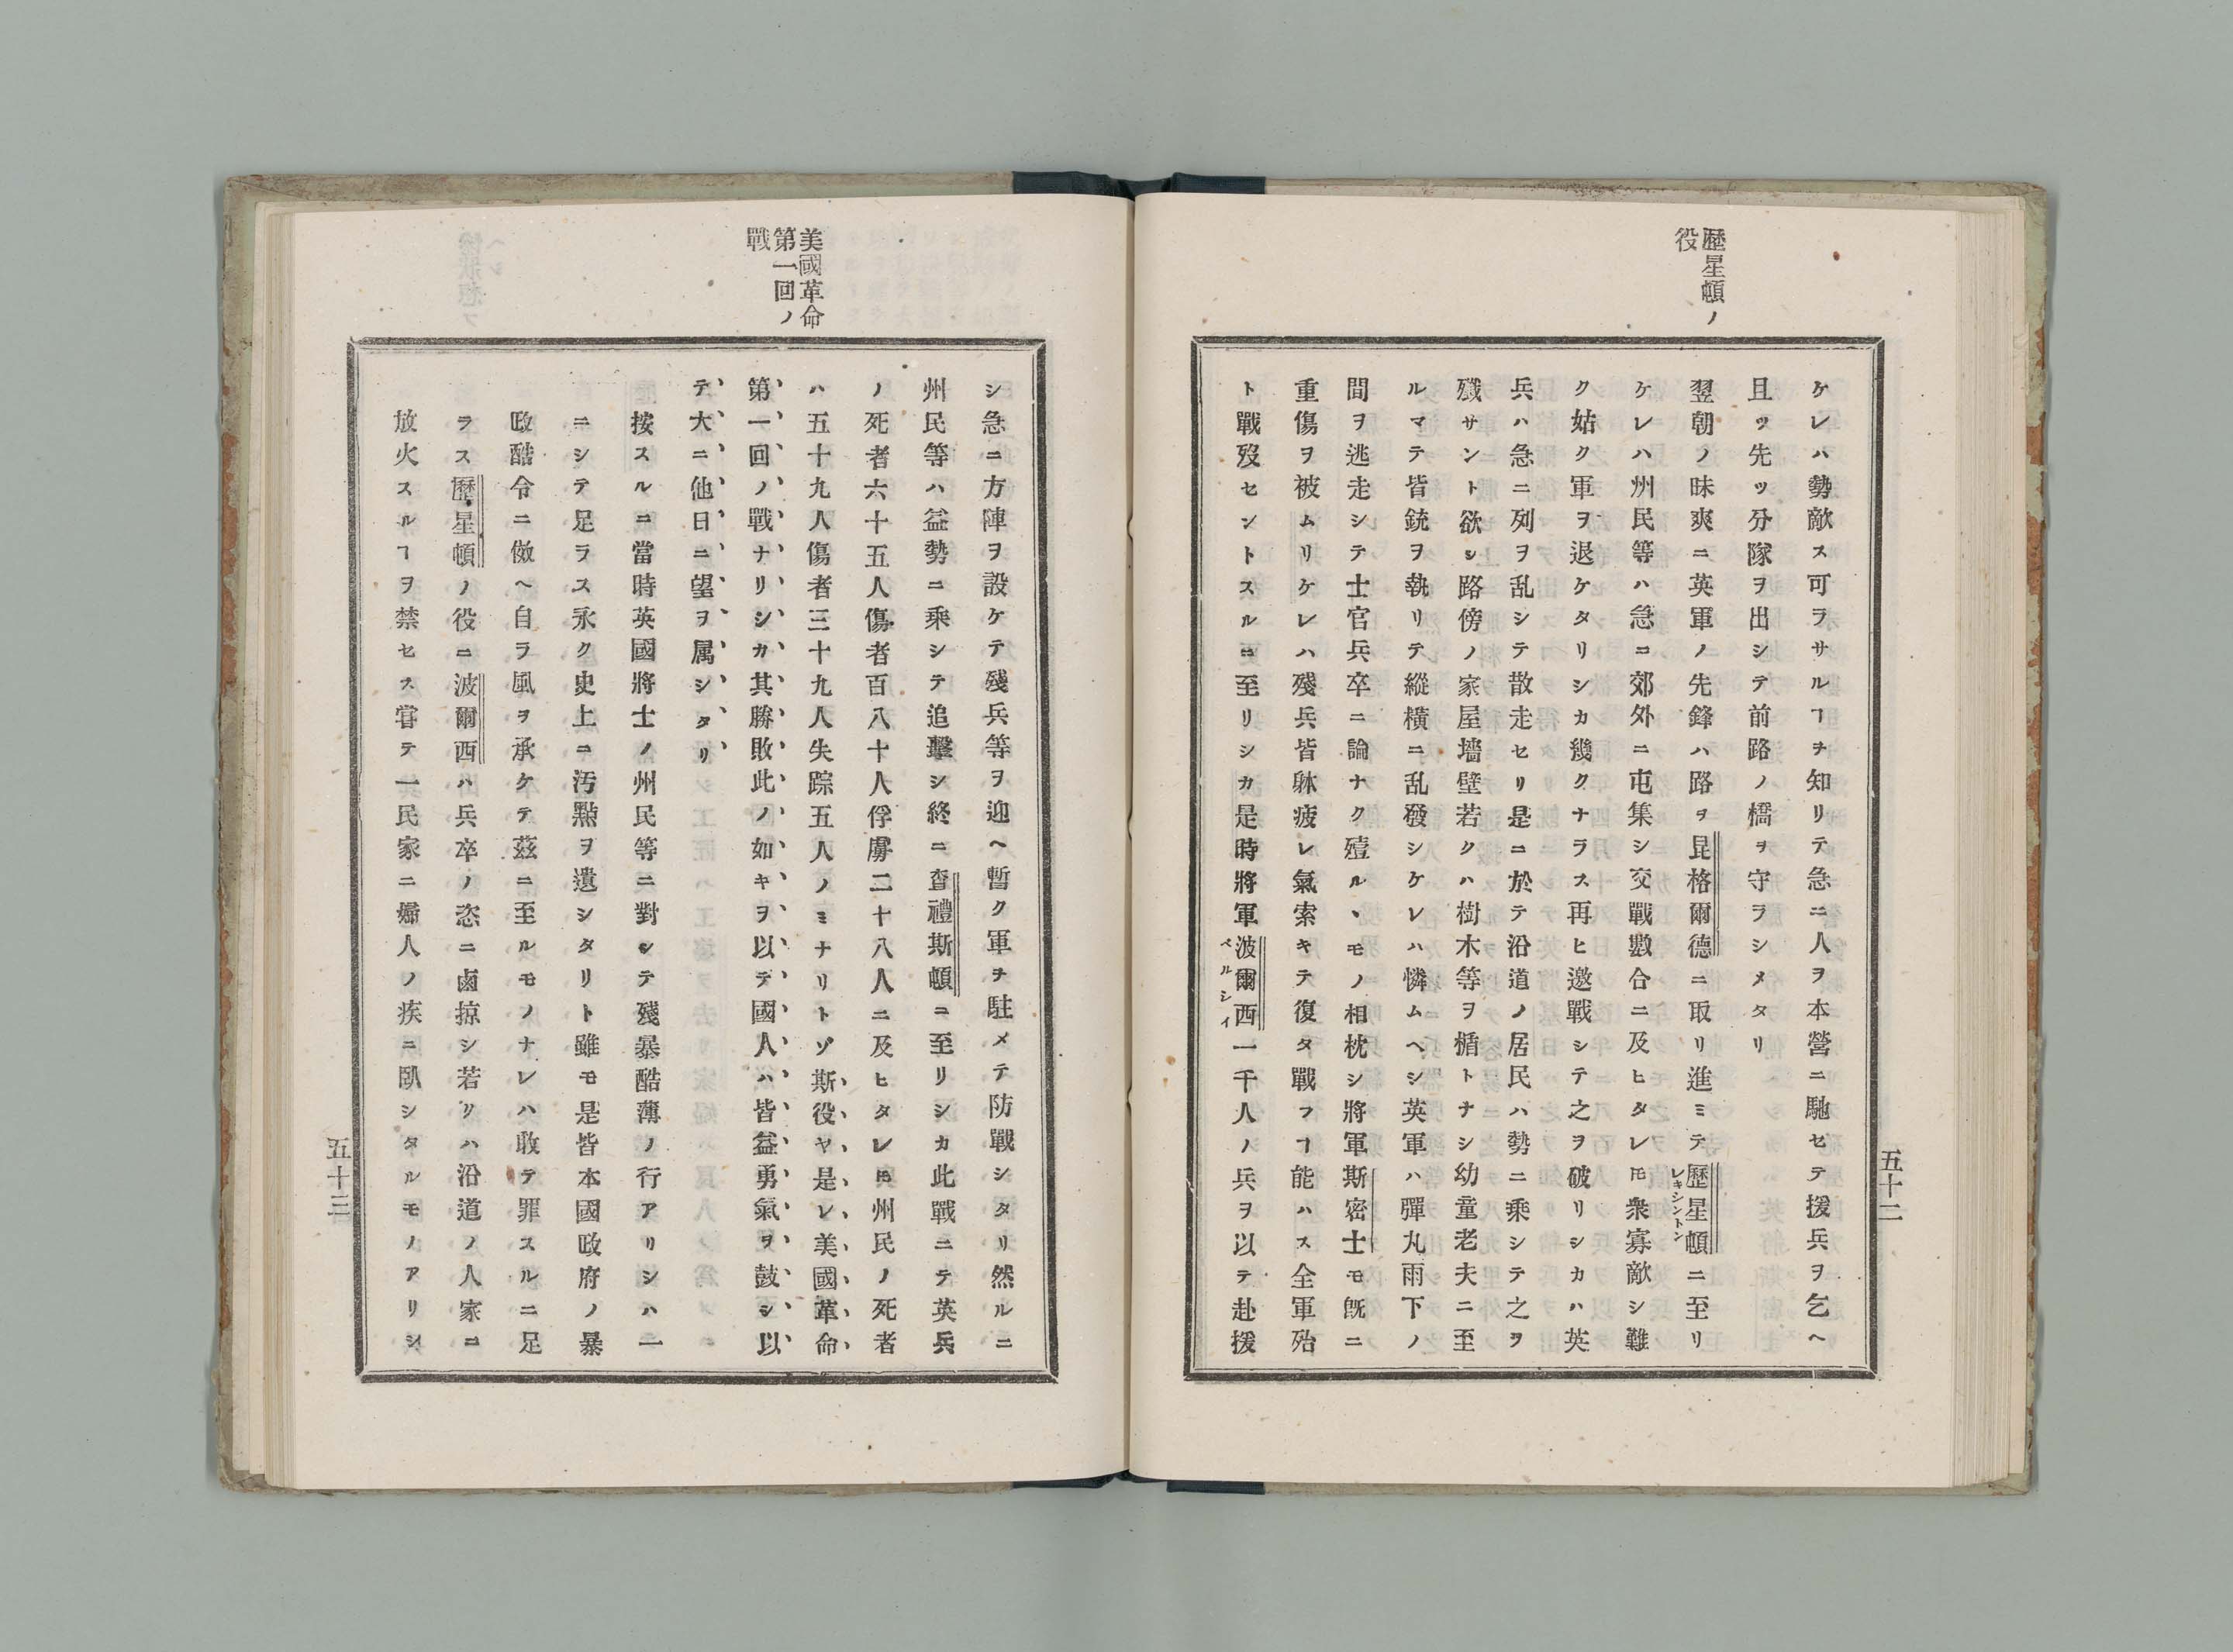 歴星頓ノ
役
ケレハ勢敵ス可ヲサルヿヲ知リテ急ニ人ヲ本營ニ馳セテ援兵ヲ乞ヘ
且ツ先ツ分隊ヲ出シテ前路ノ橋ヲ守ラシメタリ
翌朝ノ昧爽ニ英軍ノ先鋒ハ路ヲ昆格爾德ニ取リ進ミテ歴星頓ニ至リ
レキシントン
ケレハ州民等ハ急ニ郊外ニ屯集シ交戰數合ニ及ヒタレ𪜈衆寡敵シ難
ク姑ク軍ヲ退ケタリシカ幾クナラス再ヒ邀戰シテ之ヲ破リシカハ英
兵ハ急ニ列ヲ乱シテ散走セリ是ニ於テ沿道ノ居民ハ勢ニ乗シテ之ヲ
殲サント欲シ路傍ノ家屋墻壁若クハ樹木等ヲ楯トナシ幼童老夫ニ至
ルマテ皆銃ヲ執リテ縱橫ニ乱發シケレハ憐ムヘシ英軍ハ彈丸雨下ノ
間ヲ逃走シテ士官兵卒ニ論ナク殪ルヽモノ相枕シ將軍斯密士モ既ニ
重傷ヲ被ムリケレハ殘兵皆躰疲レ氣索キテ復タ戰フヿ能ハス全軍殆
ト戰歿セントスルニ至リシカ是時將軍波爾西一千人ノ兵ヲ以テ赴援
ペルシイ
五十二
美國革命
第一回ノ
戰
シ急ニ方陣ヲ設ケテ殘兵等ヲ迎ヘ暫ク軍ヲ駐メテ防戰シタリ然ルニ
州民等ハ益勢ニ乗シテ追擊シ終ニ查禮斯頓ニ至リシカ此戰ニテ英兵
ノ死者六十五人傷者百八十人俘虜二十八人ニ及ヒタレ𪜈州民ノ死者
ハ五十九人傷者三十九人失踪五人ノミナリトゾ斯役ヤ是レ美國革命
第一回ノ戰ナリシカ其勝敗此ノ如キヲ以テ國人ハ皆益勇氣ヲ鼓シ以
テ大ニ他日ニ望ヲ属シタリ
按スルニ當時英國將士ノ州民等ニ對シテ殘暴酷薄ノ行アリシハ一
ニシテ足ラス永ク史上ニ汚點ヲ遺シタリト雖モ是皆本國政府ノ暴
政酷令ニ倣ヘ自ラ風ヲ承ケテ茲ニ至ルモノナレハ敢テ罪スルニ足
ラス歴星頓ノ役ニ波爾西ハ兵卒ノ恣ニ鹵掠シ若クハ沿道ノ人家ニ
放火スルヿヲ禁セス甞テ一民家ニ婦人ノ疾ニ臥シタルモノアリシ
五十三